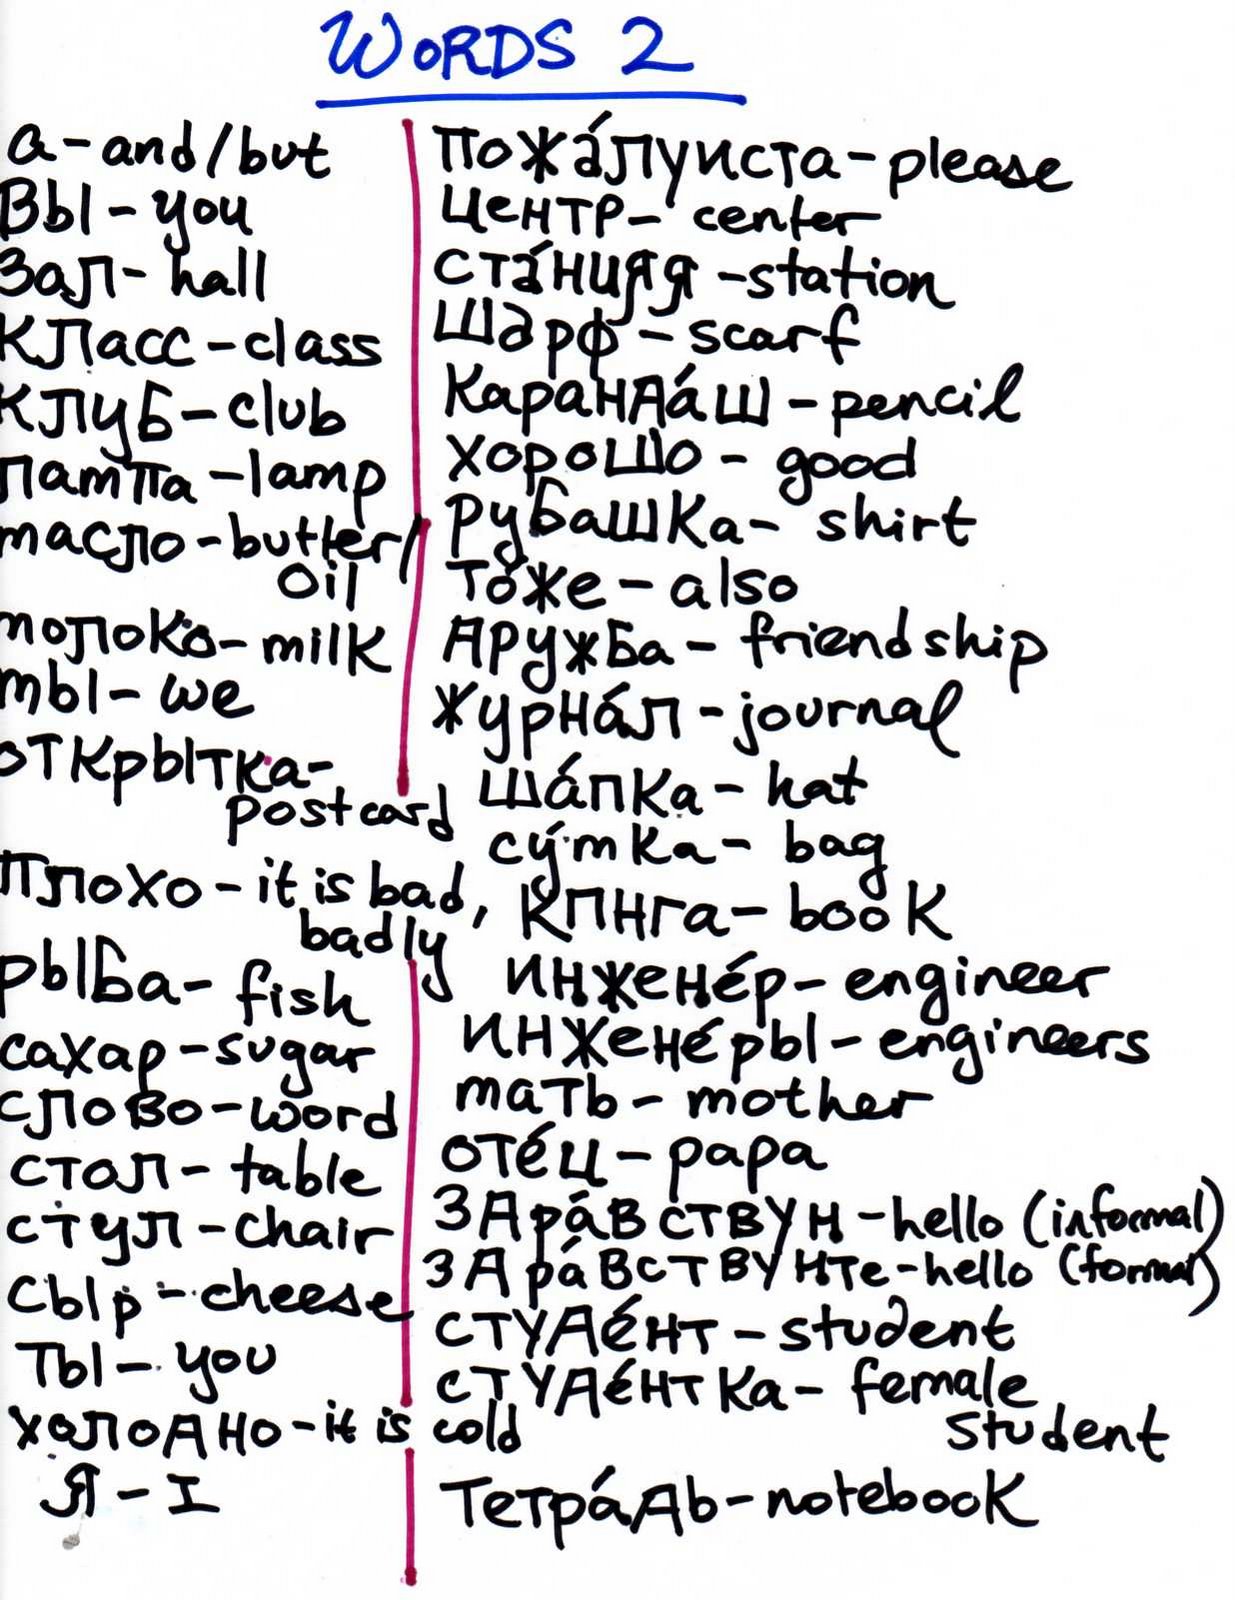 WORDS 2
а - and/but
Вы - you
Зал - hall
Класс - class
Клуб - club
лампа - lamp
масло - butter/
oil
молоко - milk
мы - we
открытка -
postcard
Плохо - it is bad,
badly
рыба - fish
сахар - sugar
слово - word
стол - table
стул - chair
сыр - cheese
Ты - you
холодно - it is cold
Я - I
пожа́луиста - please
центр - center
ста́нцяя - station
Шарф - scarf
каранда́ш - pencil
хорошо - good
рубашка - shirt
то́же - also
дружба - friendship
журна́л - journal
ша́пка - hat
су́мка - bag
кпнга - book
инжене́р - engineer
инжене́ры - engineers
мать - mother
оте́ц - papa
здра́вствуи - hello (informal)
здра́вствуите - hello (formal)
студе́нт - student
студе́нтка - female
student
тетра́дь - notebook